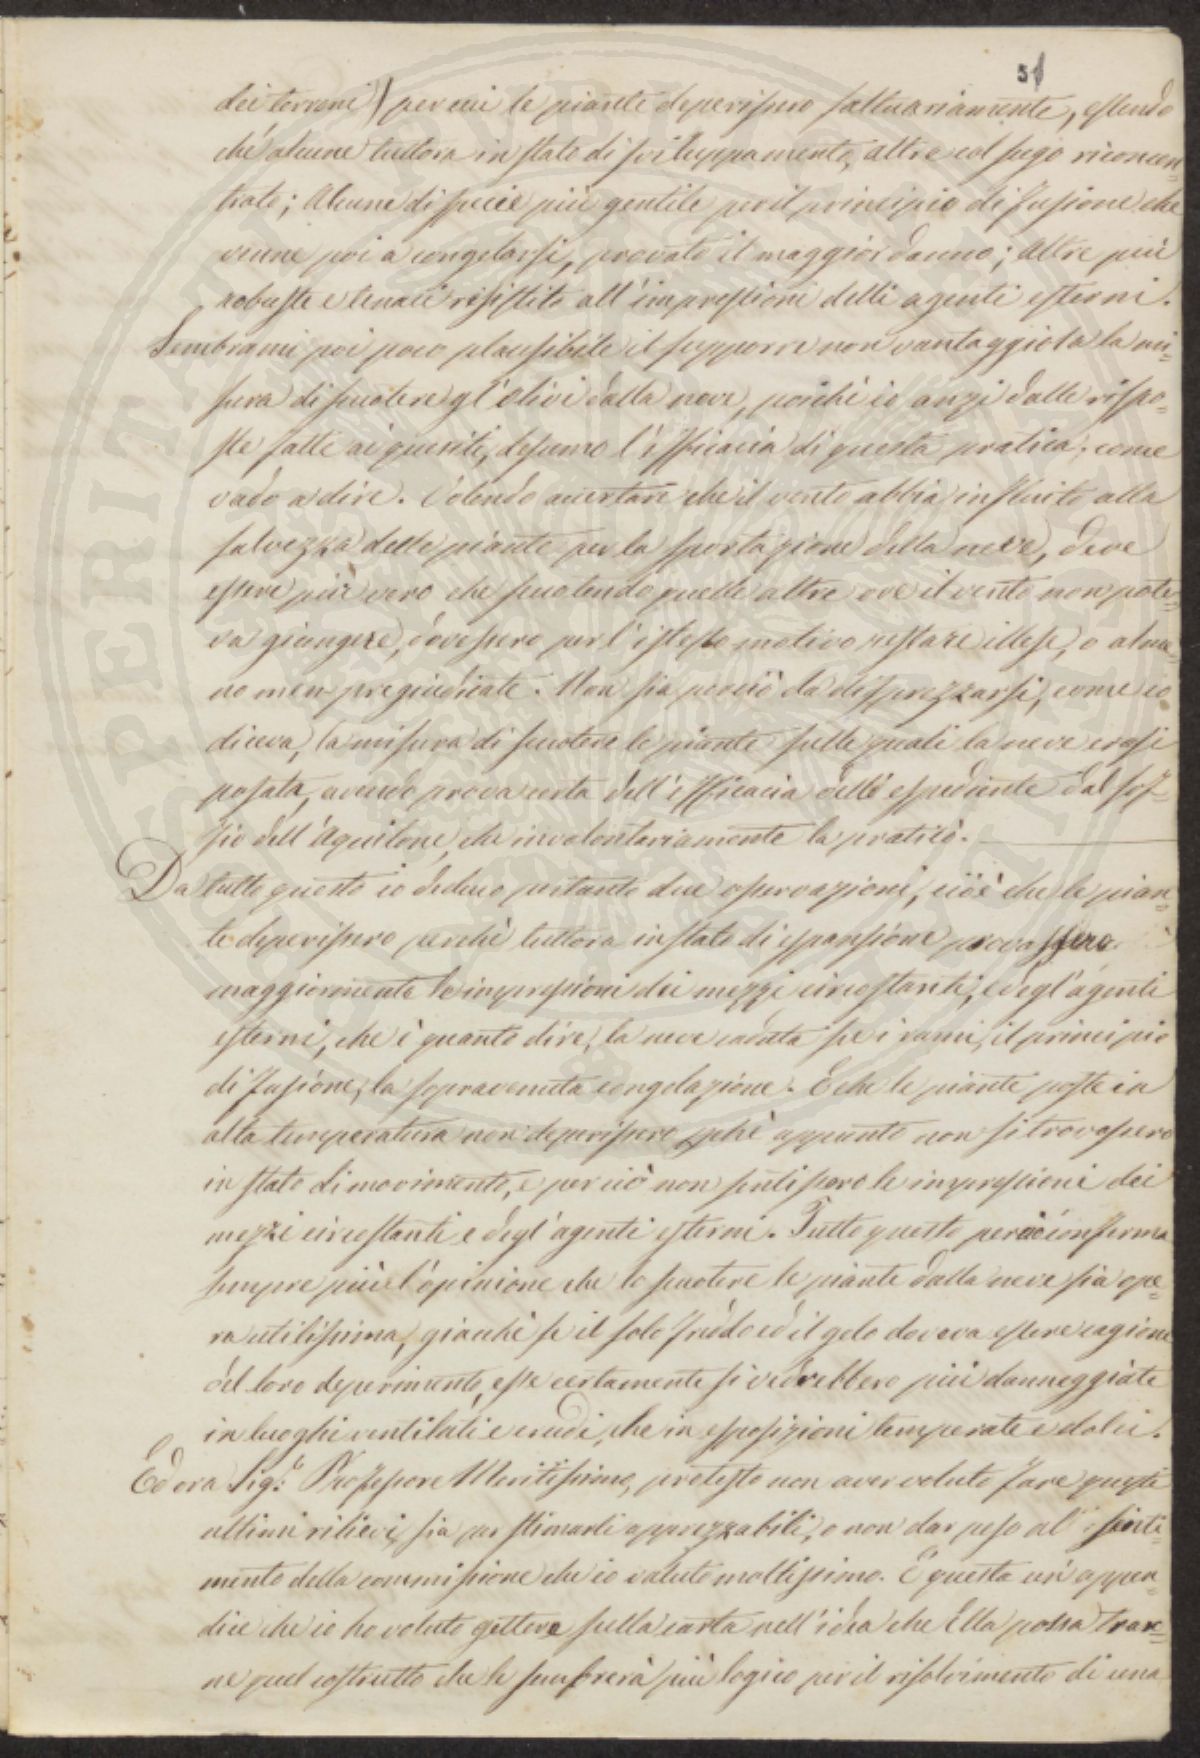 51
dei terreni) per cui le piante deperissero saltuariamente, essendo
chè alcune tuttora in stato di sviluppamento, altre col sugo riconcen=
trato; Alcune di specie più gentile per il principio di fusione che
venne poi a congelarsi, provato il maggior danno; Altre più
robuste e tenaci resistito all'impressioni delli agenti esterni.
Sembrami poi poco plausibile il supporre non vantaggiosa la mi=
sura di scuotere gl'Olivi dalla neve, poichè io anzi dalle rispo=
ste fatte ai quesiti, desumo l'efficacia di questa pratica, come
vado a dire. Volendo accertare che il vento abbia influito alla
salvezza delle piante per la sportazione della neve, deve
essere più vero che scuotendo quelle altre ove il vento non pote=
va giungere, dovessero per l'istesso motivo restare illese, o alme=
no men pregiudicate. Non sia perciò da disprezzarsi, come io
diceva, la misura di scuotere le piante sulle quali la neve erasi
posata, avendo prova certa dell'efficacia dell'espediente dal sof=
fio dell'Aquilone, che involontariamente la praticò.
Da tutto questo io deduco pertanto due osservazioni, cioè che le pian=
te deperissero perchè tuttora in stato di espansione provassero
maggiormente le impressioni dei mezzi circostanti, e degl'agenti
esterni, che è quanto dire, la neve caduta su i rami, il principio
di fusione, la sopravenuta congelazione. E che le piante poste in
alta temperatura non deperissero pchè appunto non si trovassero
in stato di movimento, e perciò non sentissero le impressioni dei
mezzi circostanti e degl'agenti esterni. Tutto questo perciò conferma
sempre più l'opinione che lo scuotere le piante dalla neve sia ope=
ra utilissima, giacchè se il solo freddo ed il gelo doveva essere cagione
del loro deperimento, esse certamente si vedrebbero più danneggiate
in luoghi ventilati e crudi, che in esposizioni temperate e dolci.
Ed ora Sig.e Professore Meritissimo, protesto non aver voluto fare questi
ultimi rilievi, sia per stimarli apprezzabili, o non dar peso al senti=
mento della commissione che io valuto moltissimo. È questa un'appen=
dice che io ho voluto gettare sulla carta nell'idea che Ella possa trar=
ne quel costrutto che le sembrerà più logico per il risolvimento di una